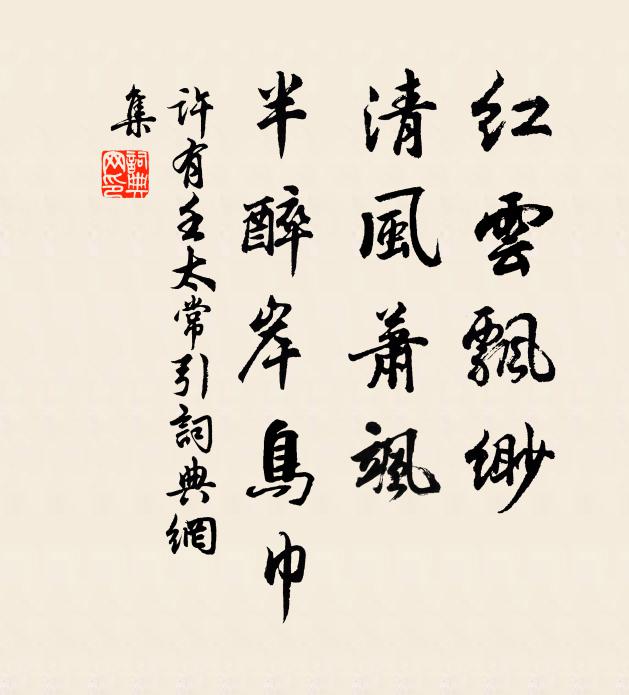 紅雲飄緲
清風蕭颯
半醉岸烏巾
許有壬太常引詞典網
集
詞典
網印